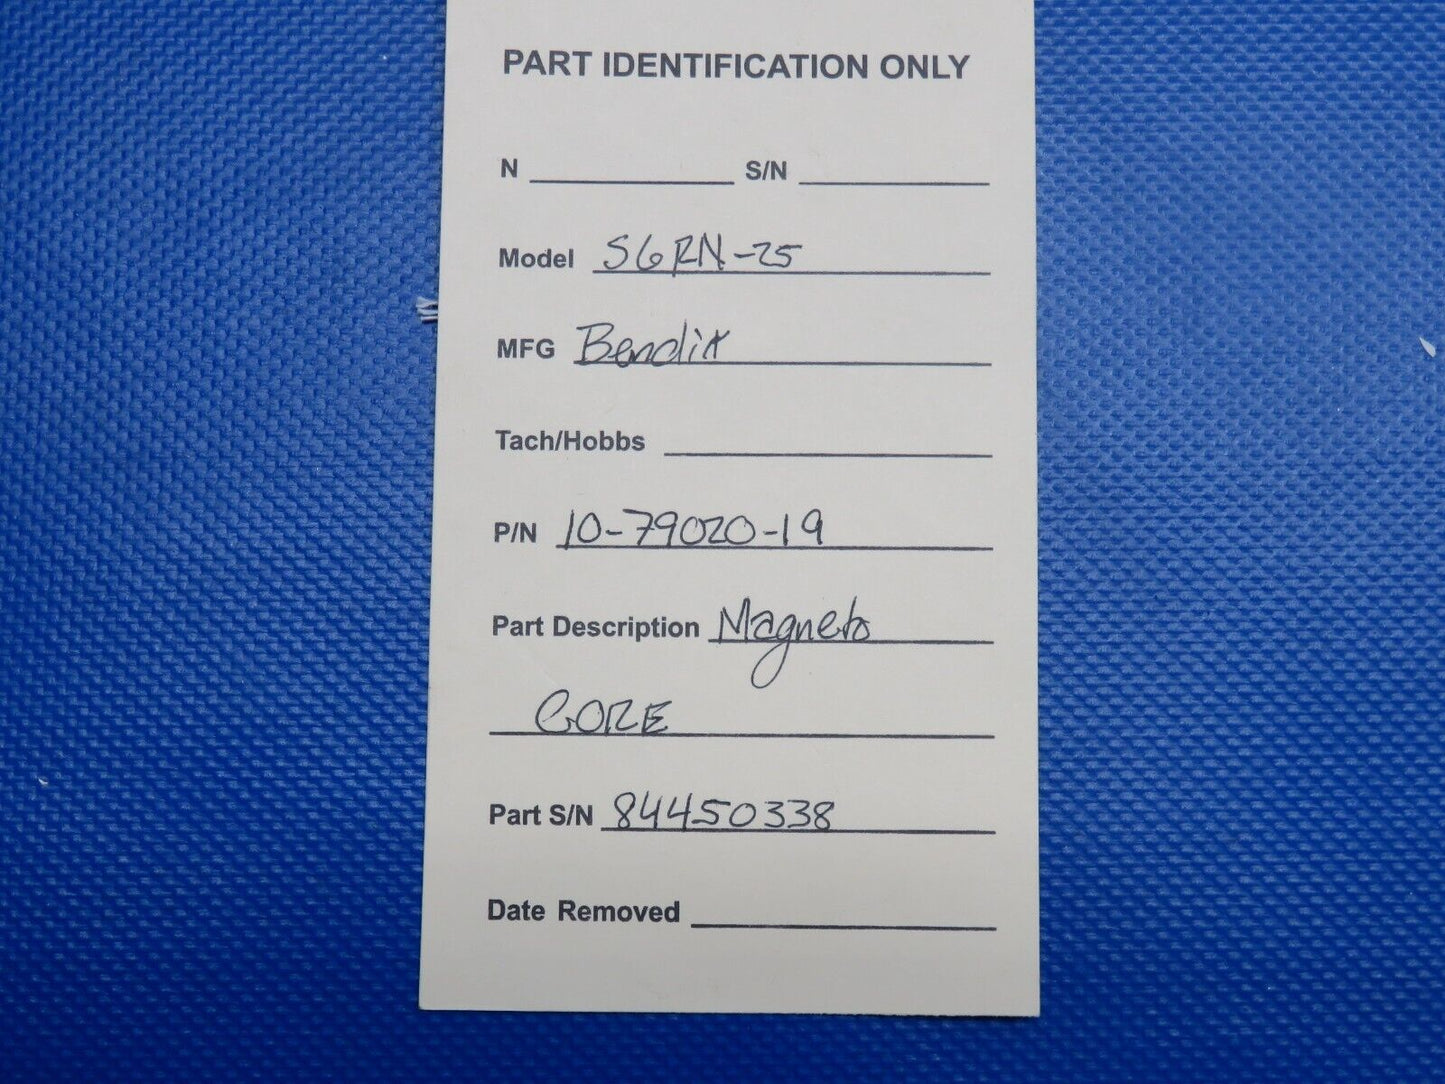 PART IDENTIFICATION ONLY
N S/N
Model S6RN-25
MFG Bendix
Tach/Hobbs
P/N 10-79020-19
Part Description Magneto
CORE
Part S/N 84450338
Date Removed